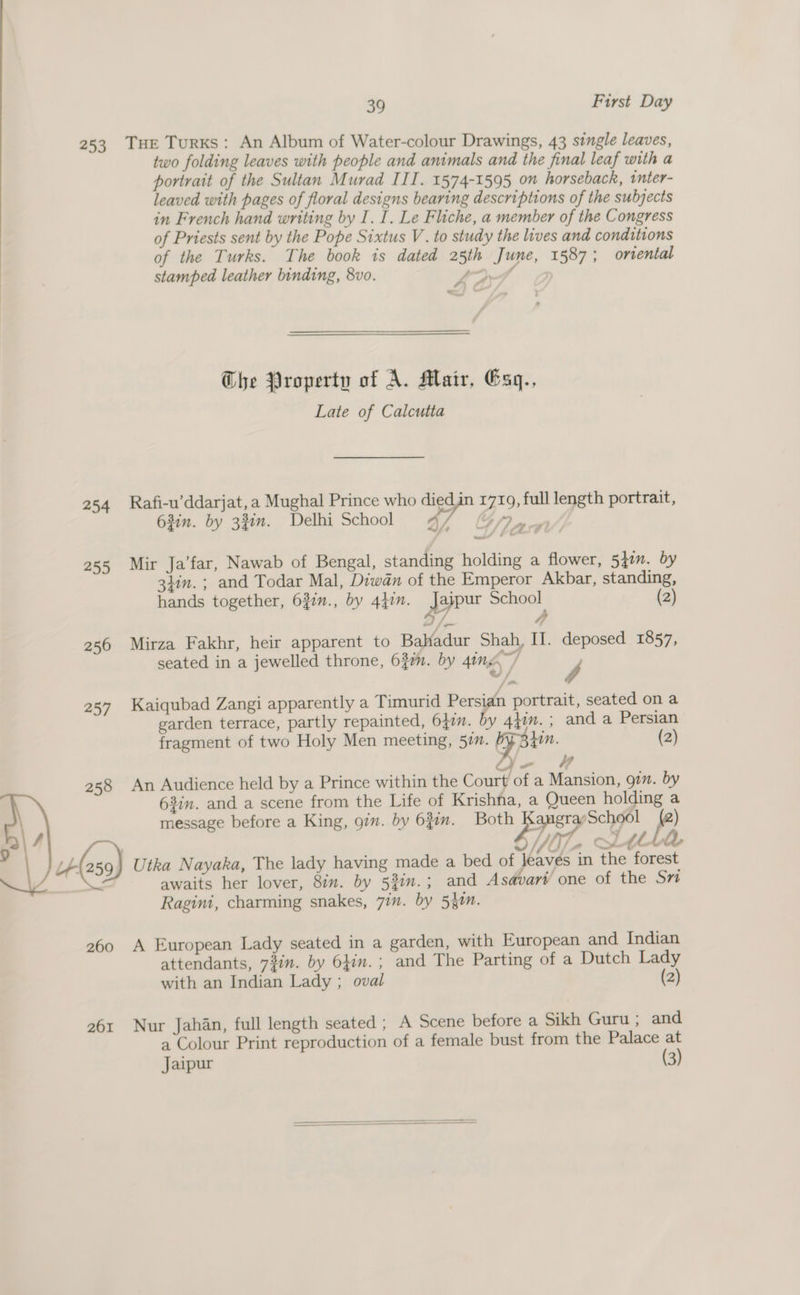 39 First Day
253 THE TURKS: An Album of Water-colour Drawings, 43 single leaves,
two folding leaves with people and animals and the final leaf with a
portrait of the Sultan Murad III. 1574-1595 on horseback, inter-
leaved with pages of floral designs bearing descriptions of the subjects
in French hand writing by I. I. Le Fliche, a member of the Congress
of Priests sent by the Pope Sixtus V. to study the lives and conditions
of the Turks. The book is dated 25th June, 1587; oriental
stamped leather binding, 8vo.
The Property of A. Mair, Esq.,
Late of Calcutta
254 Rafi-u'ddarjat, a Mughal Prince who died in 1719, full length portrait,
6¾in. by 3¾in. Delhi School
255 Mir Ja'far, Nawab of Bengal, standing holding a flower, 5½in. by
3½in.; and Todar Mal, Diwán of the Emperor Akbar, standing,
hands together, 6¾in., by 4½in. Jajpur School (2)
256 Mirza Fakhr, heir apparent to Bahadur Shah, II. deposed 1857,
seated in a jewelled throne, 6¾in. by 4in.
257 Kaiqubad Zangi apparently a Timurid Persian portrait, seated on a
garden terrace, partly repainted, 6½in. by 4½in.; and a Persian
fragment of two Holy Men meeting, 5in. by 3½in. (2)
258 An Audience held by a Prince within the Court of a Mansion, 9in. by
6¾in. and a scene from the Life of Krishna, a Queen holding a
message before a King, 9in. by 6¾in. Both Kangra School (2)
259 Utka Nayaka, The lady having made a bed of leaves in the forest
awaits her lover, 8in. by 5¾in.; and Asávari one of the Sri
Ragini, charming snakes, 7in. by 5½in.
260 A European Lady seated in a garden, with European and Indian
attendants, 7¾in. by 6½in.; and The Parting of a Dutch Lady
with an Indian Lady; oval (2)
261 Nur Jahán, full length seated; A Scene before a Sikh Guru; and
a Colour Print reproduction of a female bust from the Palace at
Jaipur (3)